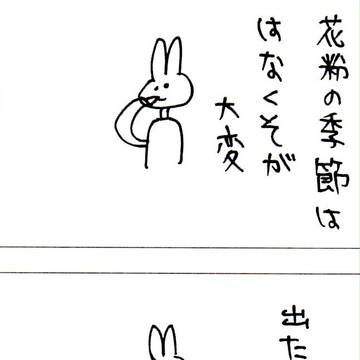 花粉の季節は
はなくそが
大変
出た